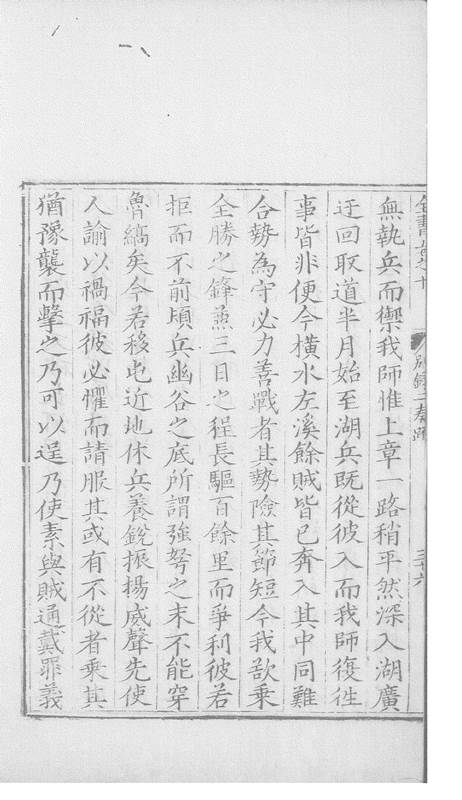 全書卷之十
別錄二奏疏
三十六
無執兵而禦我師惟上章一路稍平然深入湖廣
迂回取道半月始至湖兵既從彼入而我師復徃
事皆非便今橫水左溪餘賊皆已奔入其中同難
合勢為守必力善戰者其勢險其節短今我欲乗
全勝之鋒蒸三日之程長驅百餘里而爭利彼若
拒而不前頓兵幽谷之底所謂強弩之末不能穿
魯縞矣今若移屯近地休兵養銳振揚威聲先使
人諭以禍福彼必懼而請服其或有不從者乗其
猶豫襲而擊之乃可以逞乃使素與賊通戴罪義